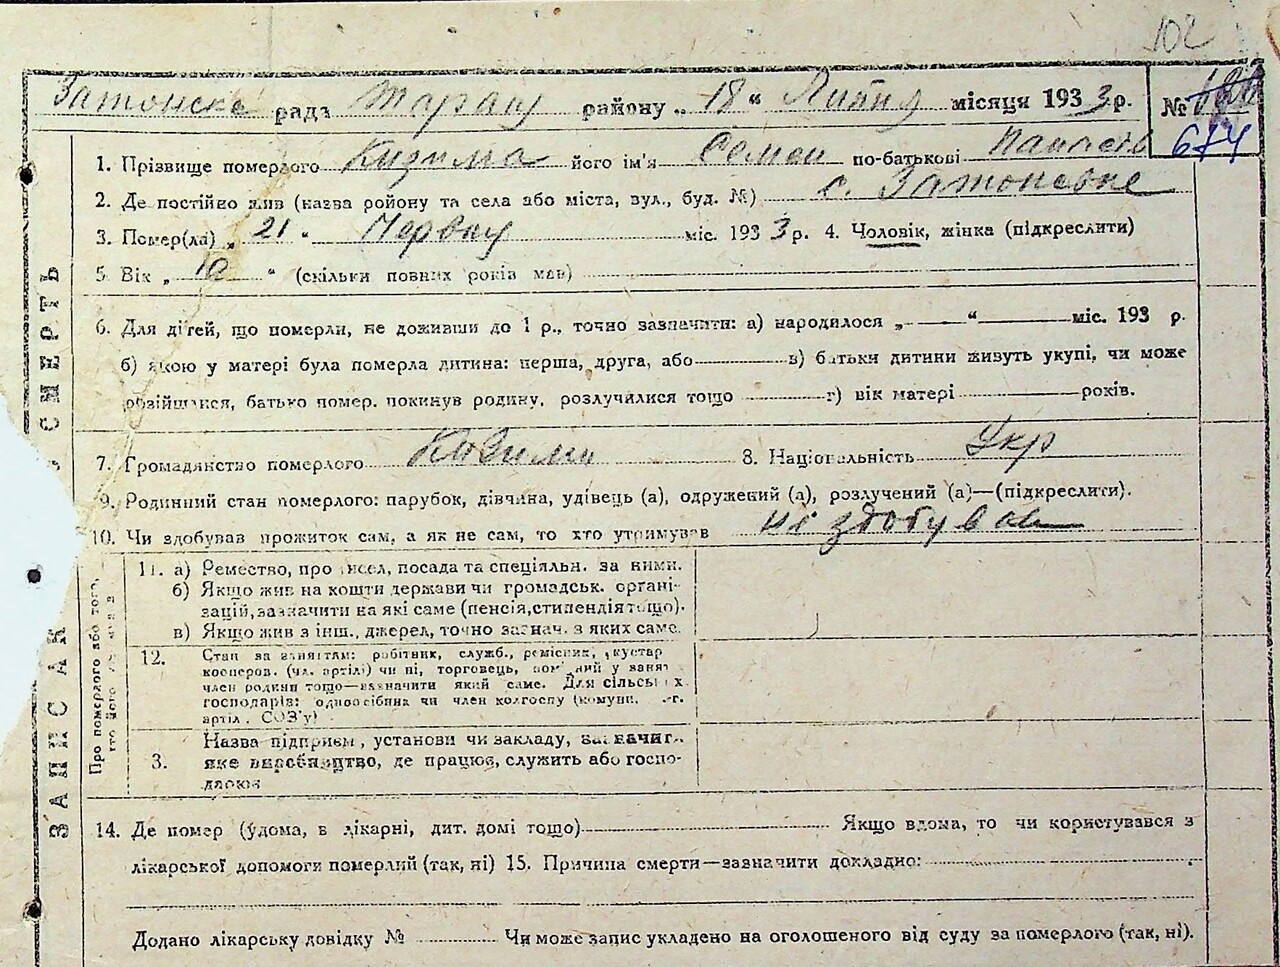 102
Затонске рада Таращ району „ 18 “ Липня місяця 1933 р. №
674
1. Прізвище померлого Кизима його ім'я Семен по-батькові Панасів
2. Де постійно жив (назва району та села або міста, вул., буд. №) с. Затонское
3. Помер(ла) „ 21 “ Червня міс. 1933 р. 4. Чоловік, жінка (підкреслити)
5. Вік „ 10 “ (скільки повних років мав)
6. Для дітей, що померли, не доживши до 1 р., точно зазначити: а) народилося „ — “ — міс. 193 р.
б) якою у матері була померла дитина: перша, друга, або — в) батьки дитини живуть укупі, чи може
розійшлися, батько помер, покинув родину, розлучилися тощо — г) вік матері — років.
7. Громадянство померлого 8. Національність Укр
9. Родинний стан померлого: парубок, дівчина, удівець (а), одружений (а), розлучений (а)—(підкреслити).
10. Чи здобував прожиток сам, а як не сам, то хто утримував не здобував
ЗАПИС СМЕРТЬ
Про померлого або того,
11. а) Ремество, промисел, посада та спеціяльн. за ними.
б) Якщо жив на кошти держави чи громадськ. органі-
зацій, зазначити на які саме (пенсія, стипендія тощо).
в) Якщо жив з інш., джерел, точно зазнач. з яких саме.
12. Стан за заняттям: робітник, служб., ремісник, кустар
кооперов. (чл. артілі) чи ні, торговець, пом' ний у занят
член родини тощо—зазначити який саме. Для сільськ х
господарів: одноосібник чи член колгоспу (комуни, сг.
артіл, СОЗ'у)
3. Назва підприєм, установи чи закладу, зазначит.
яке виробництво, де працює, служить або госпо-
дарює
14. Де помер (удома, в лікарні, дит. домі тощо) — Якщо вдома, то чи користувався з
лікарської допомоги померлий (так, ні) 15. Причина смерти—зазначити докладно:
Додано лікарську довідку № Чи може запис укладено на оголошеного від суду за померлого (так, ні).